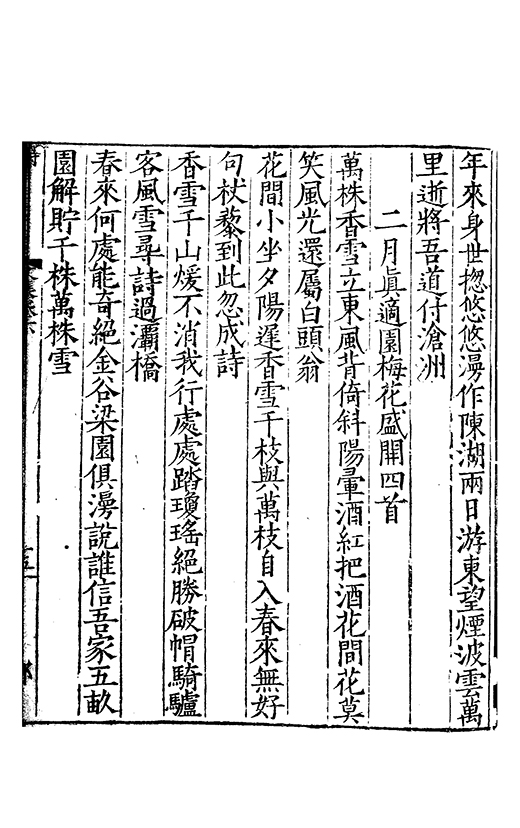 年來身世揔悠悠漫作陳湖兩日游東望煙波雲萬
里逝將吾道付滄洲
二月眞適園梅花盛開四首
萬株香雪立東風背倚斜陽暈酒紅把酒花間花莫
笑風光還屬白頭翁
花間小坐夕陽遲香雪千枝與萬枝自入春來無好
句杖藜到此忽成詩
香雪千山煖不消我行處處踏瓊瑤絕勝破帽騎驢
客風雪尋詩過灞橋
春來何處能奇絕金谷梁園俱漫說誰信吾家五畝
園解貯千株萬株雪